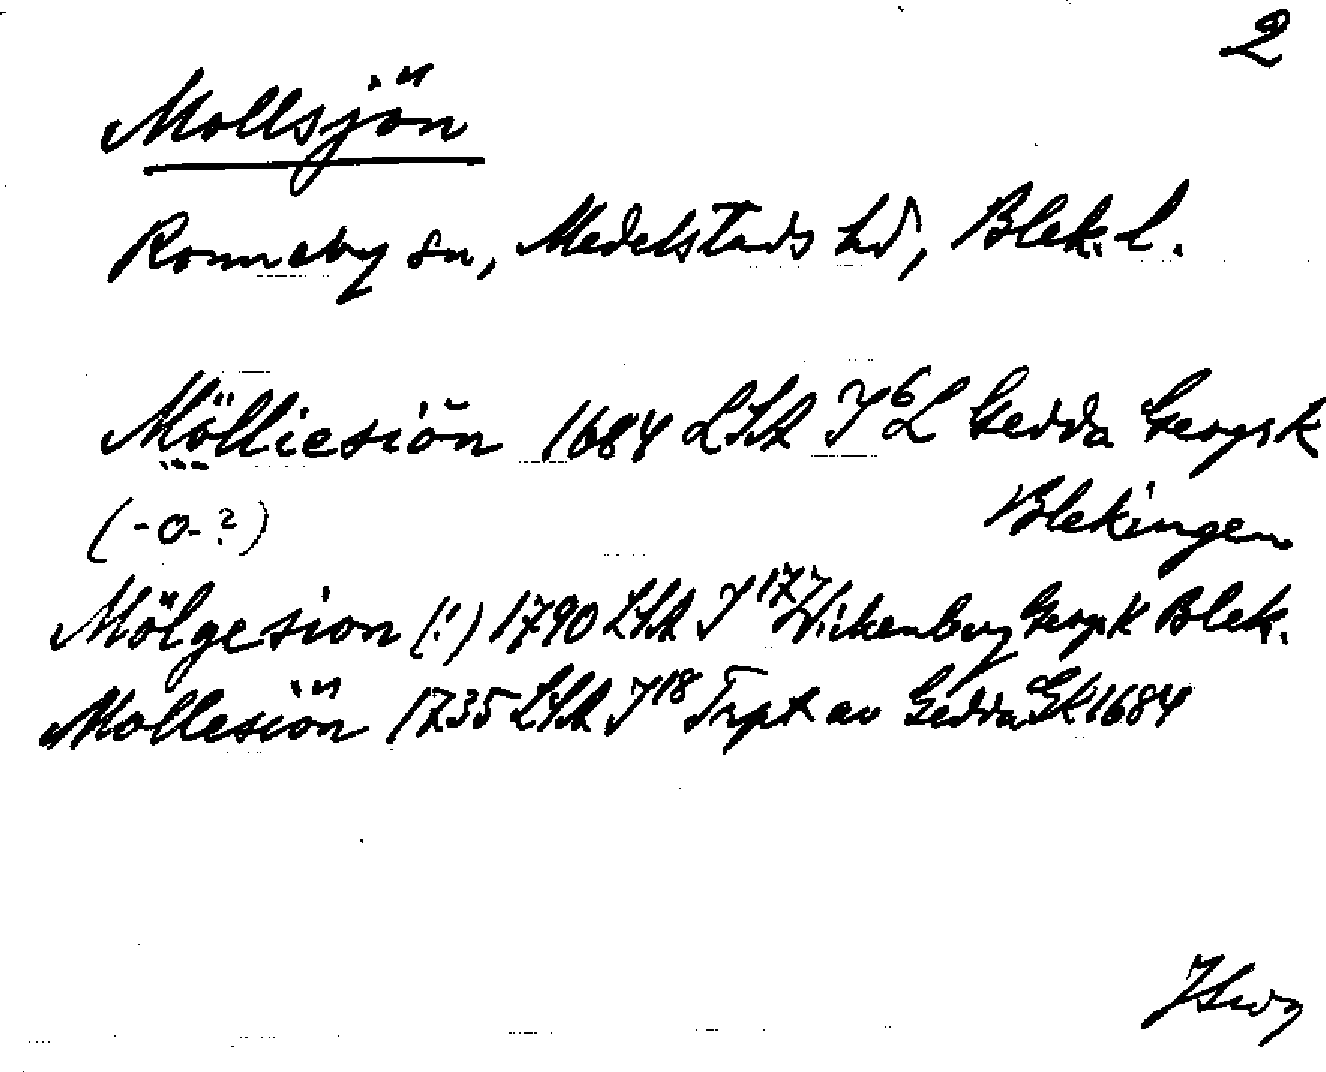 2
Mollsjön
Ronneby sn, Medelstads hd, Blek. l.
Mölliesiön 1684 LSA I 6 L Gedda Geogr K
(-o-?) Blekingen
Mölgesion (!) 1790 LSA I 17 Wickenberg Geogr K Blek.
Mollesiön 1735 LSA I 18 Trpt av Gedda GK 1684